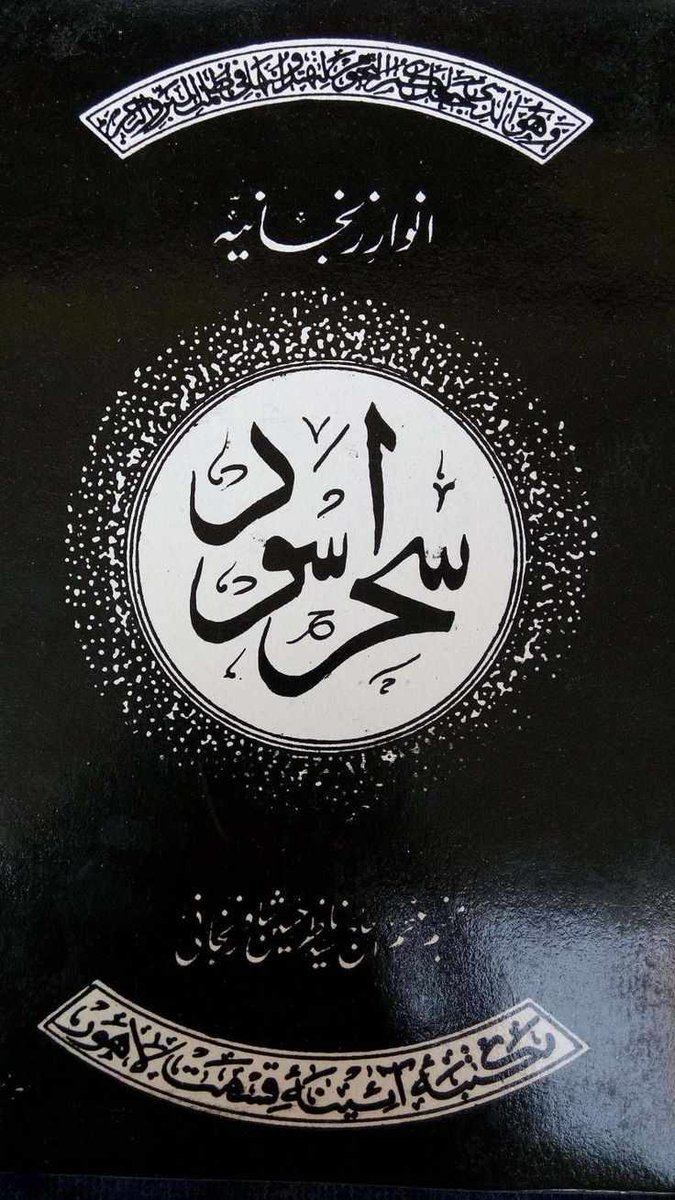 وهو الذي جعل لكم النجوم لتهتدوا بها في ظلمات البر والبحر
انوارِ زنجانیہ
سحر اسود
سید ناظر حسین شاہ زنجانی
مکتبہ آئینہ قسمت لاہور